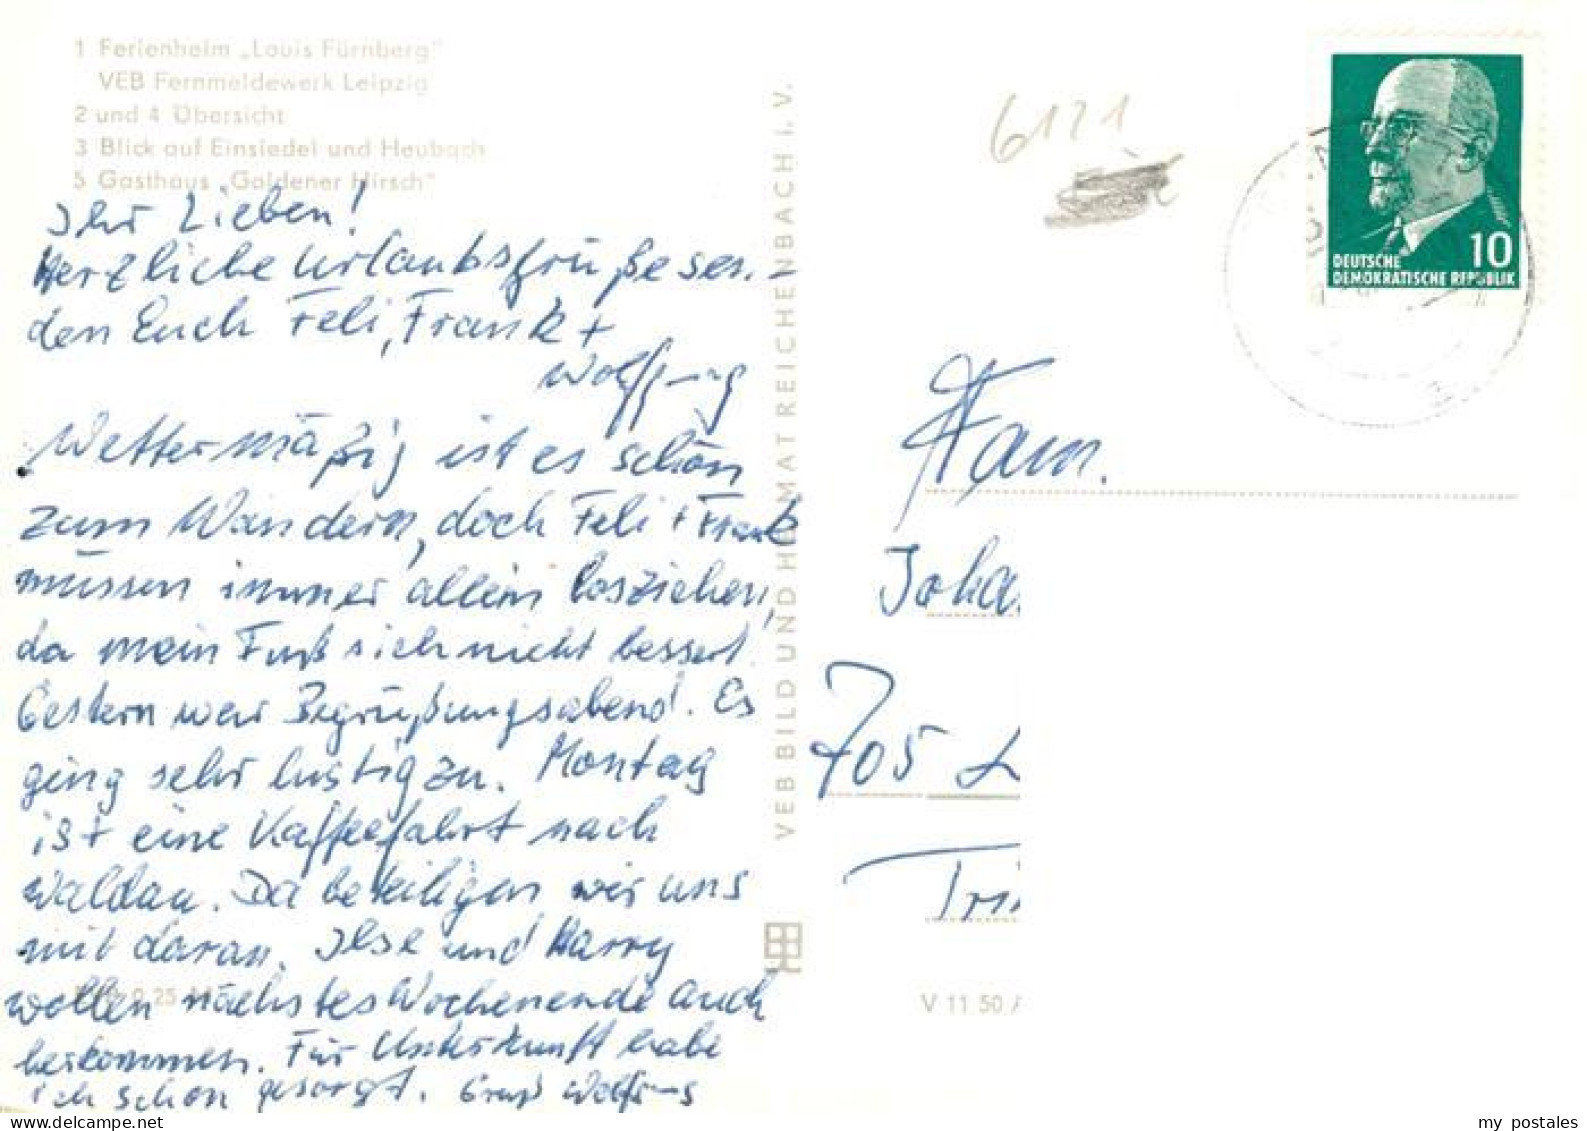 1 Ferienheim „Louis Fürnberg"
VEB Fernmeldewerk Leipzig
2 und 4 Übersicht
3 Blick auf Einsiedel und Heubach
5 Gasthaus „Goldener Hirsch"
Ihr Lieben!
Herzliche Urlaubsgrüße sen-
den Euch Feli, Frank +
Wolfgang
Wettermäßig ist es schön
zum Wandern, doch Feli + Frank
müssen immer allein losziehen,
da mein Fuß sich nicht bessert.
Gestern war Begrüßungsabend. Es
ging sehr lustig zu. Montag
ist eine Kaffeefahrt nach
Waldau. Da beteiligen wir uns
mit daran. Ilse und Harry
wollen nächstes Wochenende auch
herkommen. Für Unterkunft habe
ich schon gesorgt. Gruß Wolfgang
VEB BILD UND HEIMAT REICHENBACH I. V.
6121
10
DEUTSCHE
DEMOKRATISCHE REPUBLIK
Fam.
Joha
705 L
V 11 50 A
my postales